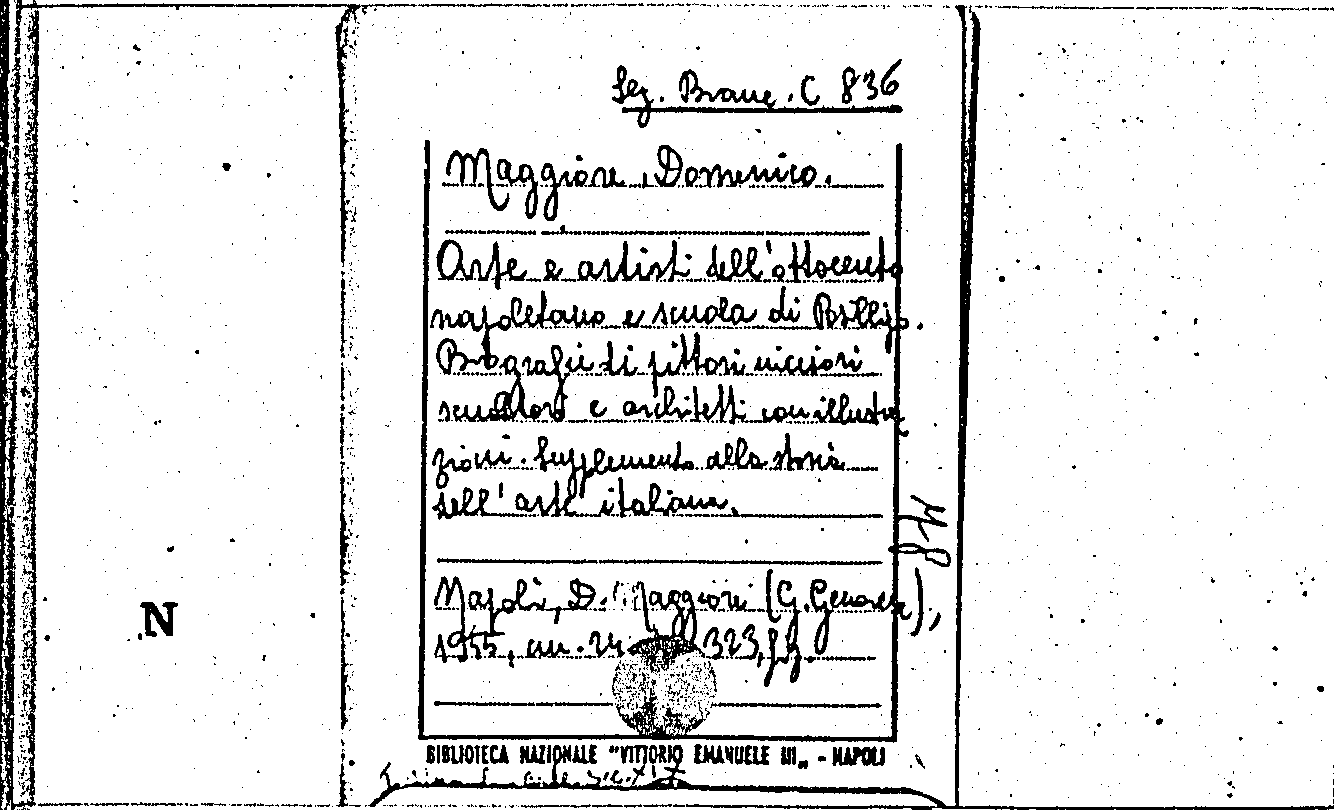 Sez. Branc. C 836
Maggiore, Domenico.
Arte e artisti dell'ottocento
napoletano e scuola di Posillipo.
Biografie di pittori incisori
scultori e architetti con illustra
zioni. Supplemento alla storia
dell'arte italiana.
Napoli, D. Maggiore (G. Genovese),
1955, cm. 24 323, fig.
N
BIBLIOTECA NAZIONALE "VITTORIO EMANUELE III„ - NAPOLI